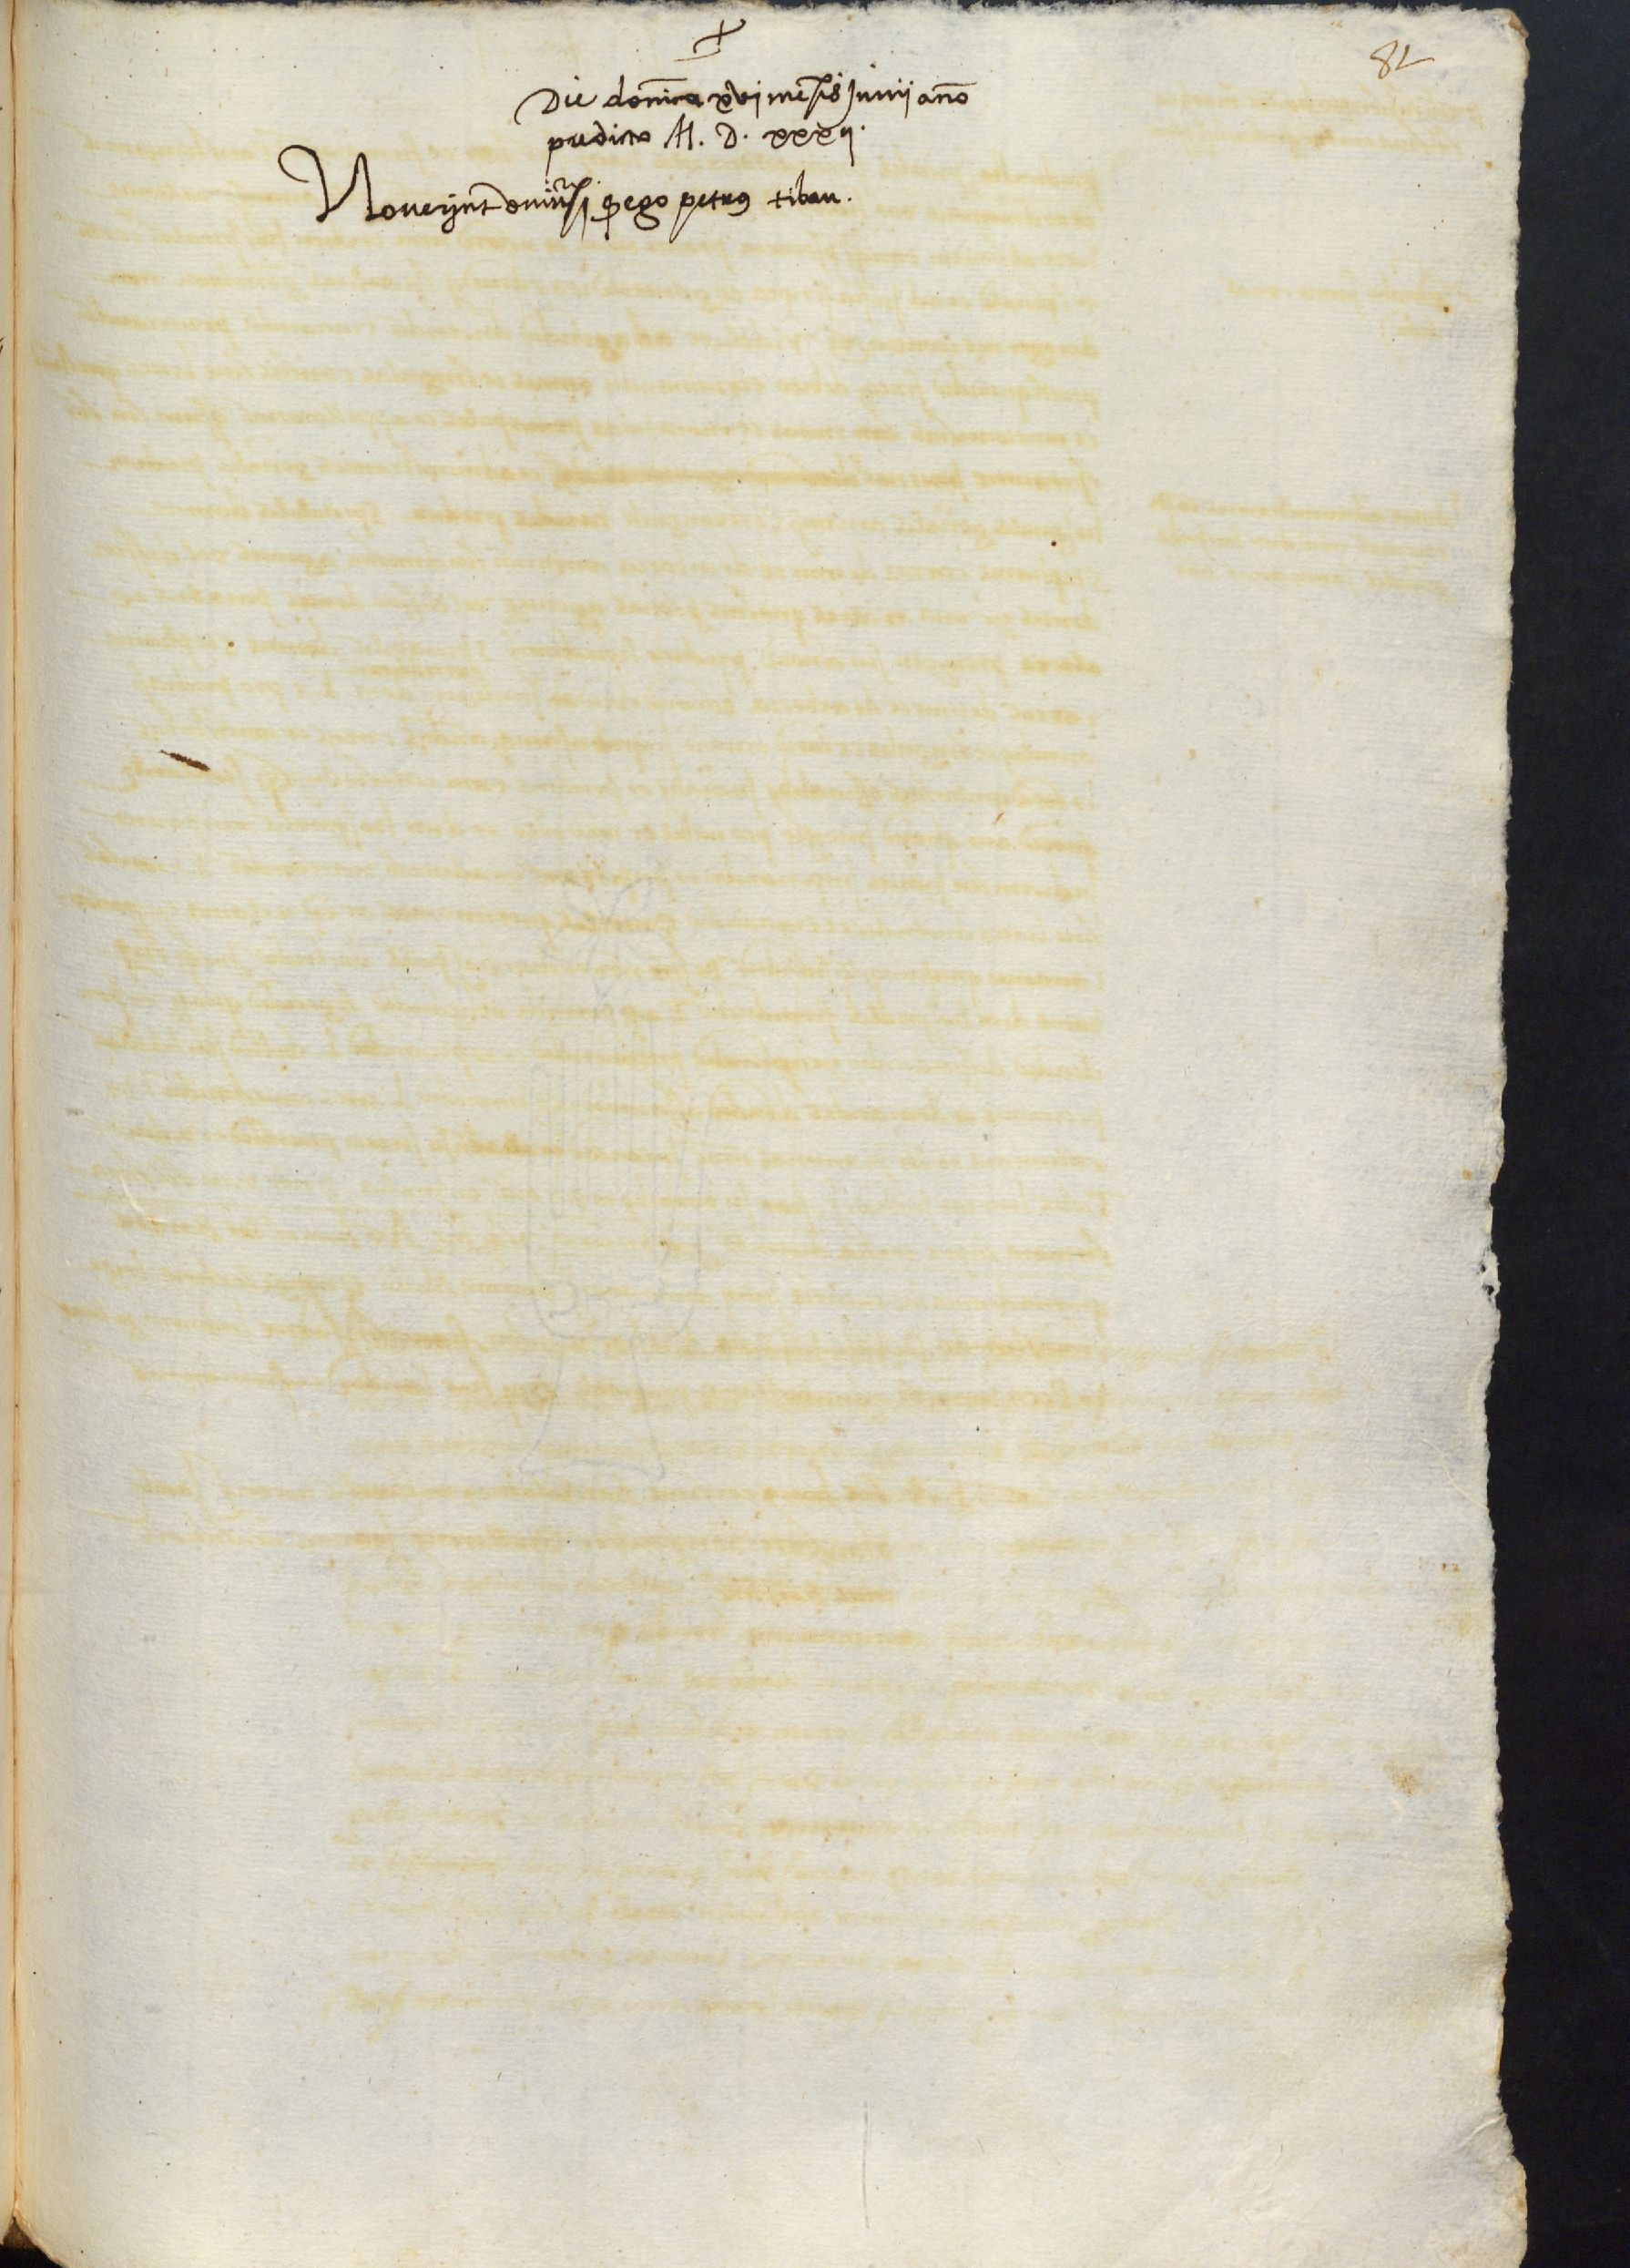 82
Die domica xvi mesis Junii ano
predicto M. D. xxxij.
Noverint universi q ego petrus tibau.